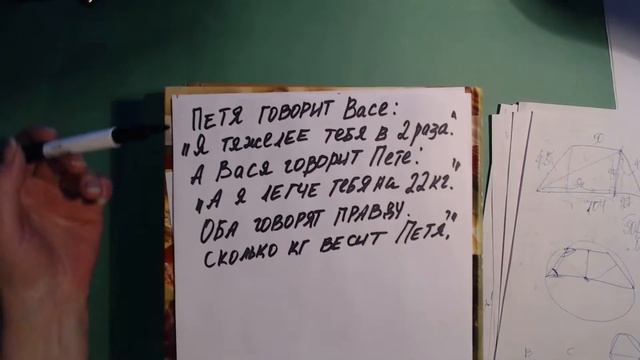 ПЕТЯ ГОВОРИТ Васе:
„Я ТЯЖЕЛЕЕ ТЕБЯ В 2 РАЗА."
А Вася говорит Пете:
„А Я ЛЕГЧЕ ТЕБЯ НА 22 КГ."
ОБА ГОВОРЯТ ПРАВДУ.
СКОЛЬКО КГ ВЕСИТ ПЕТЯ?"